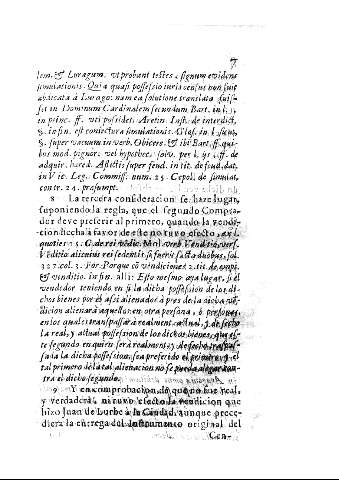 7
lem. & Loragum. vt probant testes, signum evidens
simulationis. Quia quasi possessio iuris census non fuit
abdicata à Lorago: nam ea solutione translata fuis-
set in Dominum Cardinalem secundum Bart. in l. 1.
in princ. ff. vti possidet. Aretin. Inst. de interdict.
§. in fin. est coniectura simulationis. Glos. in l. sicut,
§. super vacuum in verb. Obicere. & ibi Bart. ff. qui-
bus mod. pignor. vel hypothec. solv. per l. ff. de
adquir. hered. Afflictis super feud. in tit. de feud. dat.
in Vic. Leg. Commiss. num. 25. Cepol. de simulat.
contr. 24. præsumpt.
8 La tercera consideracion se haze lugar,
suponiendo la regla, que el segundo Compra-
dor deve preferir al primero, quando la vendi-
cion hecha à favor de este no tuvo efecto, ex l.
quoties 15. C. de rei vendic. Mol. verb. Venditio, vers.
Venditio alicuius rei sedentis sa
327. col. 3. Por. Porque condiciones 2. tit. de empt.
& venditio. in fin. alli: Esto mesmo aya lugar, si el
vendedor teniendo en si la dicha possession de los di-
chos bienes por el assi alienador à pres de la dicha ve
dicion alienara aquellos en otra persona, ò personas,
en los quales transpassara realment, actual, y de fecho
la real, y actual possession de los dichos bienes, que es-
te segundo enquiere sera realment, y de fecho traspas-
sada la dicha possession, sea preferido el primero, y el
tal primero de la tal alienacion no se pueda alegar con-
tra el dicho segundo.
9 Y en comprobacion de que no fue real,
y verdadera, ni tuvo efecto la vendicion que
hizo Juan de Lurbe à la Ciudad, aunque prece-
diera la entrega del Instrumento original del
Cen-